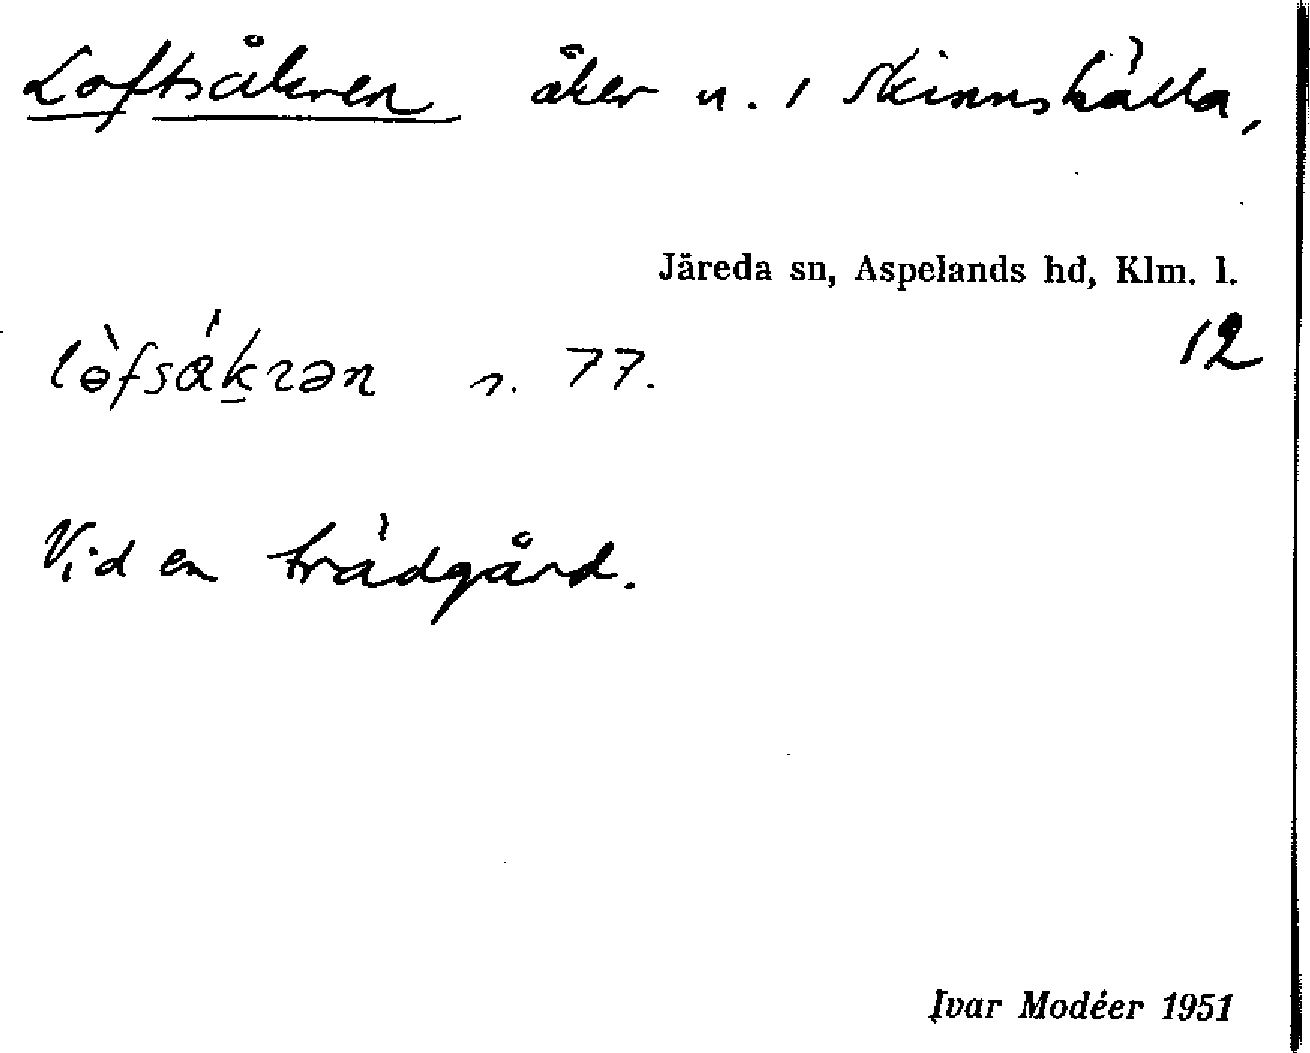 Loftsåkren åker n. 1 Skinnskälla,
Järeda sn, Aspelands hd, Klm. l.
12
lɵ̀fsɑ́krən s. 77.
Vid en trädgård.
Ivar Modéer 1951